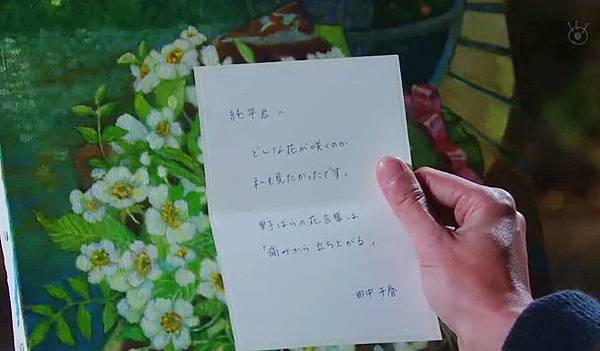 純平君へ
どんな花が咲くのか
私も見たかったです。
野ばらの花言葉は
「痛みから立ち上がる」
田中 千香